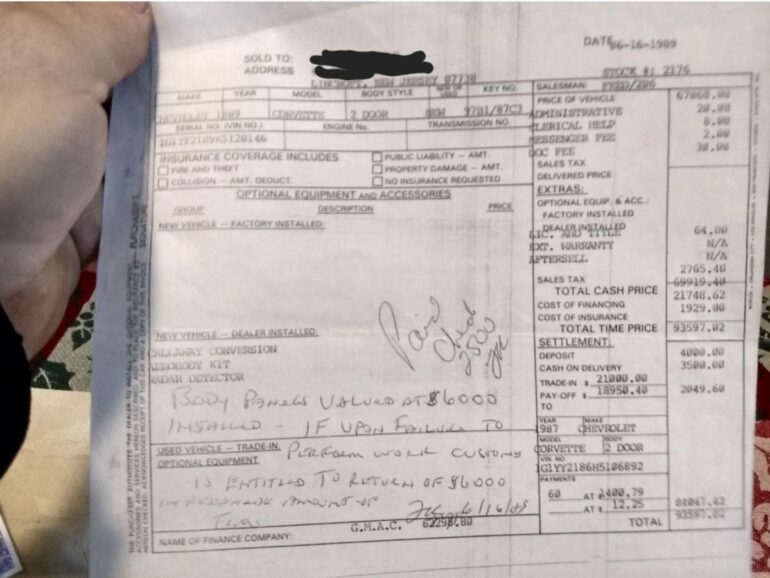 DATE 06-16-1989
SOLD TO:
ADDRESS
LINCROFT, NEW JERSEY 07738
STOCK #: 2176
MAKE YEAR MODEL BODY STYLE NEW OR USED KEY NO. SALESMAN: FRED/206
CHEVROLET 1989 CORVETTE 2 DOOR NEW 97B1/87C3
PRICE OF VEHICLE 67068.00
SERIAL NO. (VIN NO.) ENGINE No. TRANSMISSION NO.
ADMINISTRATIVE 20.00
CLERICAL HELP 8.00
MESSENGER FEE 2.00
DOC FEE 30.00
INSURANCE COVERAGE INCLUDES
PUBLIC LIABILITY — AMT.
FIRE AND THEFT
PROPERTY DAMAGE — AMT.
COLLISION — AMT. DEDUCT.
NO INSURANCE REQUESTED
SALES TAX
DELIVERED PRICE
OPTIONAL EQUIPMENT AND ACCESSORIES
EXTRAS:
GROUP DESCRIPTION PRICE
OPTIONAL EQUIP. & ACC.:
FACTORY INSTALLED
NEW VEHICLE — FACTORY INSTALLED:
DEALER INSTALLED
LIC. AND TITLE 64.00
EXT. WARRANTY N/A
AFTERSELL N/A
SALES TAX 2765.40
69919.40
TOTAL CASH PRICE
COST OF FINANCING 21748.62
COST OF INSURANCE 1929.00
TOTAL TIME PRICE 93597.02
Paid
Check
2500
NEW VEHICLE — DEALER INSTALLED:
CALLAWAY CONVERSION
AEROBODY KIT
RADAR DETECTOR
SETTLEMENT:
DEPOSIT 4000.00
CASH ON DELIVERY 3500.00
TRADE-IN $ 21000.00
PAY-OFF $ 18950.40 2049.60
TO
BODY PANELS VALUED AT $6000
INSTALLED — IF UPON FAILURE TO
YEAR MAKE
1987 CHEVROLET
MODEL BODY
CORVETTE 2 DOOR
VIN NO.
1G1YY2186H5106892
USED VEHICLE — TRADE-IN: PERFORM WORK
OPTIONAL EQUIPMENT
IS ENTITLED TO RETURN OF $6000
IN AMOUNT OF
TIME
PAYMENTS
60 AT 1400.79
AT $ 12.25 84047.42
TOTAL 93597.02
G.M.A.C. 62298.80
NAME OF FINANCE COMPANY: